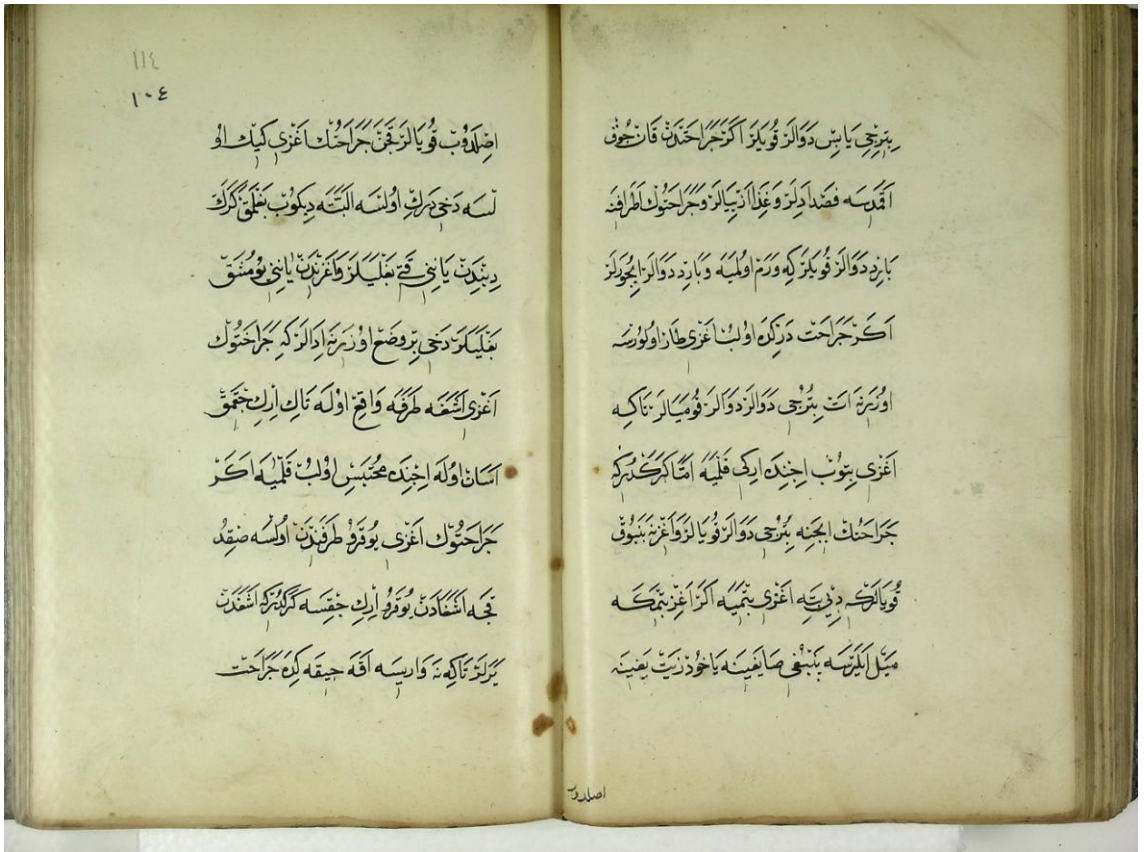 بتورجی یابس دوالر قویلر اکر جراحتدن قان چوق
اقدسه فصد ادلر و غذا از بیالر و جراحتوك اطرافنه
بارد دوالر قویلر که ورم اولمیه و بارد دوالر ایچورلر
اکر جراحت درکده اولب اغزی طار اولورسه
اوزرنه ات بتورجی دوالر دوالر قومیالر تاکه
اغزی بتوب اچنده ارکی قلمیه اما کرکدرکه
جراحتك ایچنه بتورجی دوالر قویالر و اغزنه بنبوق
قویالرکه دبی بته اغزی بتمیه اکر اغز بتمکه
میل ایلرسه بنبغی صایغینه یاخود زیت یغینه
اصلدوب
١١٤
١٠٤
اصلدوب قویالر قچن جراحتك اغزی کیك او
لسه دخی درك اولسه البته دیکوب بغلمق کرك
دبندن یانی قتی بغلیلر و اغزندن یانی یومشق
بغلیلر دخی بر وضع اوزرنه ادالر که جراحتوك
اغزی اشغه طرفه واقع اوله تاك ارك چقمق
اسان اوله اچنده محتبس اولب قلمیه اکر
جراحتوك اغزی یوقرو طرفندن اولسه صقد
قجه اشغادن یوقرو ارك چقسه کرکدرکه اشغدن
یرلر تاکه نه واریسه اقه چیقه کده جراحت